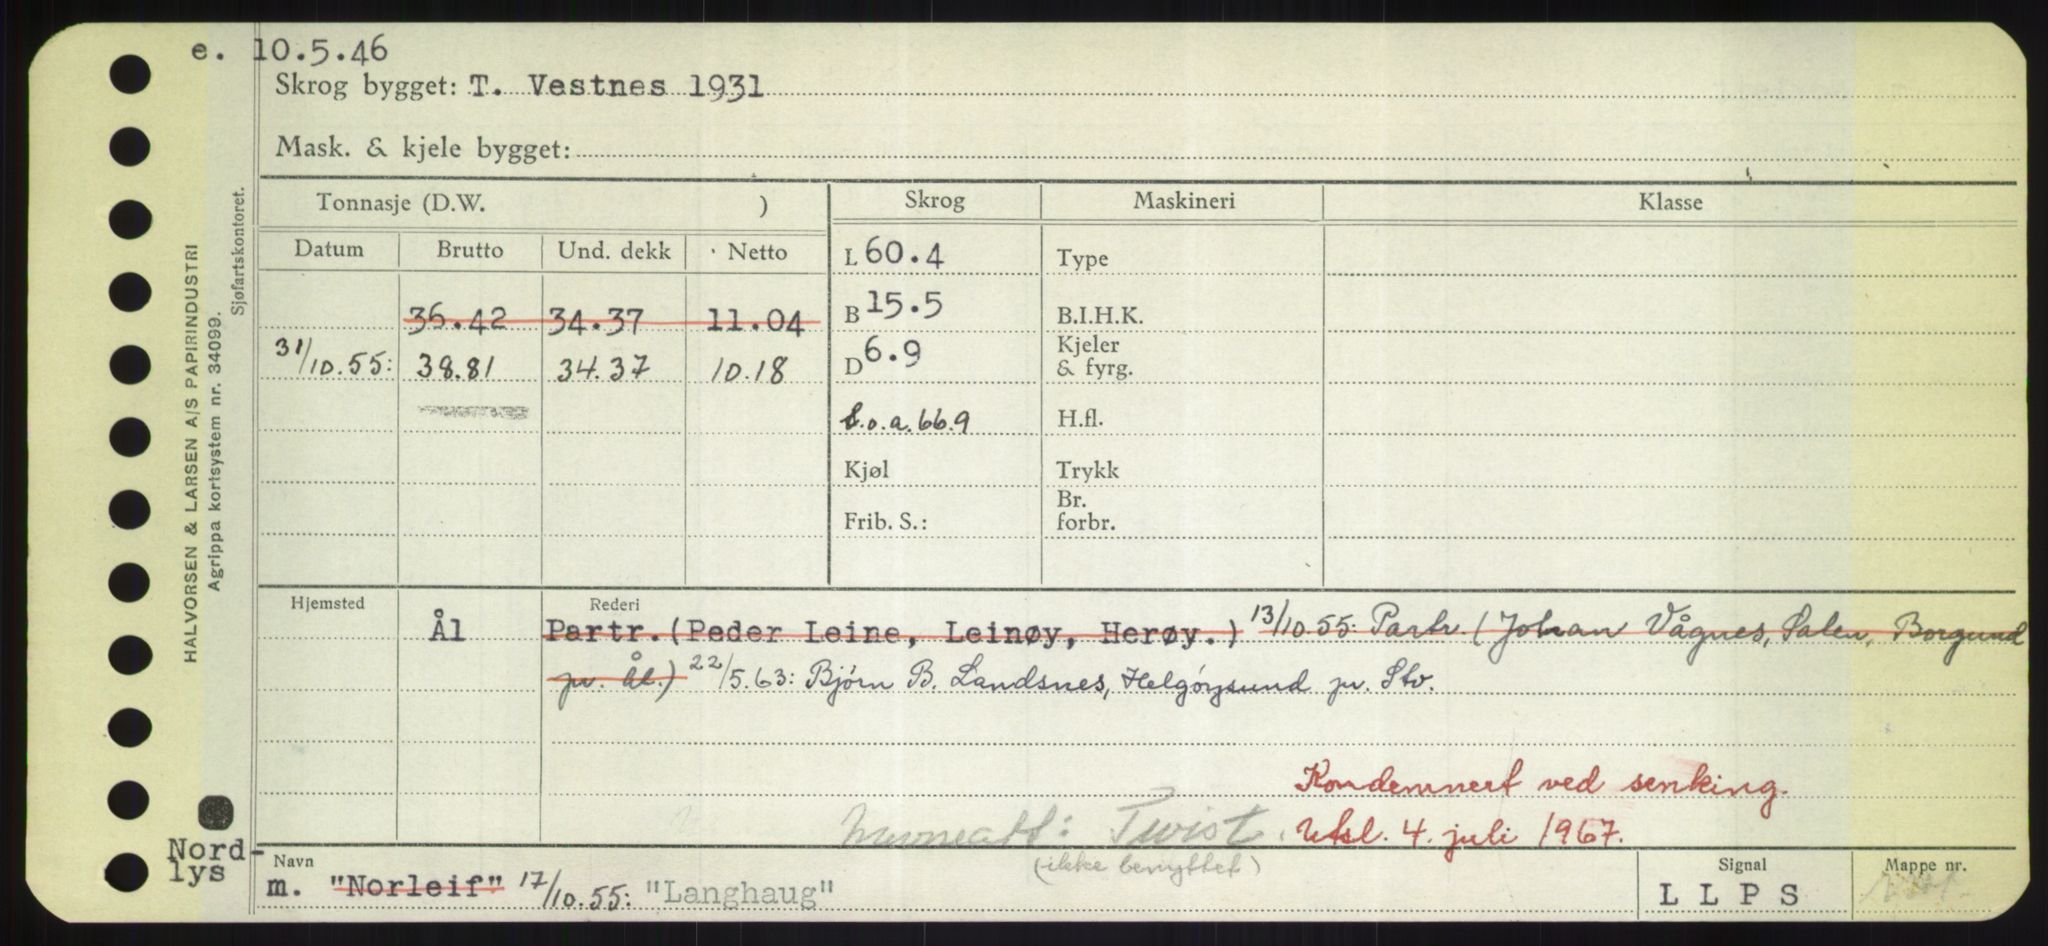 e. 10.5.46
Skrog bygget: T. Vestnes 1931
Mask. & kjele bygget:
HALVORSEN & LARSEN A/S PAPIRINDUSTRI
Agrippa kortsystem nr. 34099.
Sjøfartskontoret.
Tonnasje (D.W. ) Skrog Maskineri Klasse
Datum Brutto Und. dekk Netto L 60.4 Type
36.42 34.37 11.04 B 15.5 B.I.H.K.
31/10.55: 38.81 34.37 10.18 D 6.9 Kjeler
& fyrg.
L.o.a. 66.9 H.fl.
Kjøl Trykk
Frib. S.: Br.
forbr.
Hjemsted Rederi
Ål Partr. (Peder Leine, Leinøy, Herøy.) 13/10.55: Partr. (Johan Vågnes, Salen, Borgund
pr. Ål.) 22/5.63: Bjørn B. Landsnes, Helgøysund pr. Stv.
Kondemnert ved senking.
Navneatt: Twist. Utsl. 4. juli 1967.
(ikke benyttet)
Nord-
lys
Navn Signal Mappe nr.
m. "Norleif" 17/10.55: "Langhaug" L L P S